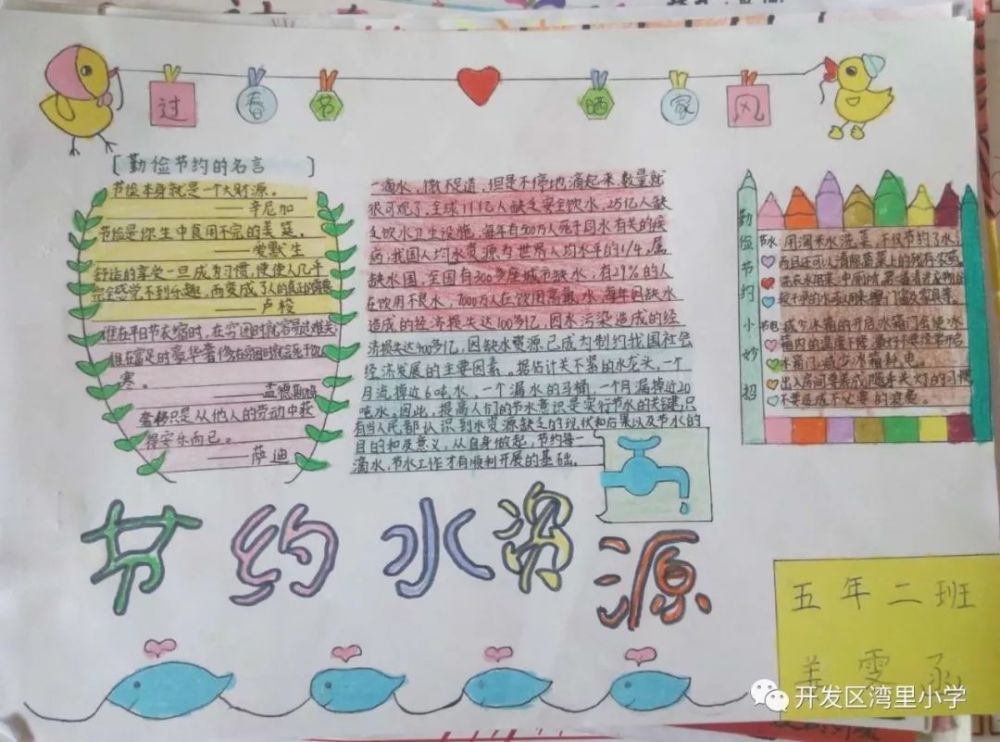 过春节 晒家风
[勤俭节约的名言]
节俭本身就是一个大财源。
——辛尼加
节俭是你生中食用不完的美筵。
——爱默生
舒适的享受一旦成为习惯,便使人几乎
完全感觉不到乐趣,而变成了人的真正的需要
——卢梭
谁在平日节衣缩食,在穷困时就容易度过难关,
谁在富足时豪华奢侈,在穷困时就会死于饥
寒。
奢侈只是从他人的劳动中获
得安乐而已。
——萨迪
一滴水,微不足道,但是不停地滴起来,数量就
很可观了,全球11亿人缺乏安全饮水,25亿人缺
乏饮水卫生设施,每年有500万人死于同水有关的疾
病,我国人均水资源为世界人均水平的1/4,属
缺水国,全国有300多座城市缺水,有29%的人
在饮用不良水,7000万人在饮用高氟水,每年因缺水
造成的经济损失达100多亿,因水污染造成的经
济损失达400多亿,因缺水资源已成为制约我国社会
经济发展的主要因素。据估计关不紧的水龙头,一个
月流掉近6吨水,一个漏水的马桶,一个月漏掉近20
吨水。因此,提高人们的节水意识是实行节水的关键,只
有当人民都认识到水资源缺乏的现状和后果以及节水的
目的和及意义,从自身做起,节约每一
滴水,节水工作才有顺利开展的基础。
勤俭节约小妙招
节水:用淘米水洗菜,不仅节约了水,
而且还可以清除蔬菜上的残存农药。
节电:减少冰箱的开启,冰箱门会使冰
冰箱门,减少冰箱耗电。
出入房间要养成随手关灯的习惯,
不要造成不必要的浪费。
节约水资源
五年二班
姜雯
开发区湾里小学